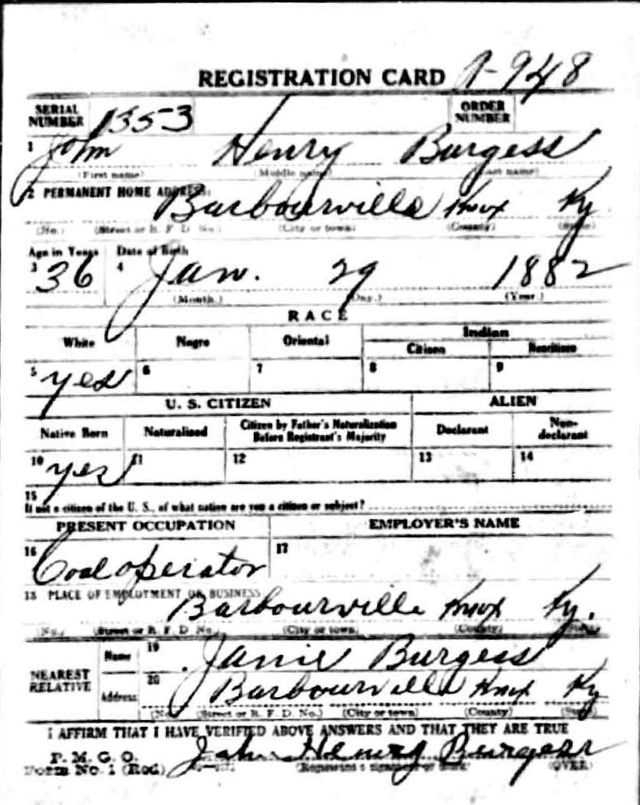 REGISTRATION CARD 1-948
SERIAL NUMBER 1353 ORDER NUMBER
1 John Henry Burgess
(First name) (Middle name) (Last name)
2 PERMANENT HOME ADDRESS:
Barbourville Knox Ky
(No.) (Street or R. F. D. No.) (City or town) (County) (State)
Age in Years Date of Birth
3 36 4 Jan. 29 1882
(Month.) (Day.) (Year.)
RACE
White Negro Oriental Indian
Citizen Noncitizen
5 yes 6 7 8 9
U. S. CITIZEN ALIEN
Native Born Naturalized Citizen by Father's Naturalization Before Registrant's Majority Declarant Non-declarant
10 yes 11 12 13 14
15
If not a citizen of the U. S., of what nation are you a citizen or subject?
PRESENT OCCUPATION EMPLOYER'S NAME
16 Coal operator 17
18 PLACE OF EMPLOYMENT OR BUSINESS
Barbourville Knox Ky.
(No.) (Street or R. F. D. No.) (City or town) (County) (State)
NEAREST RELATIVE Name 19 Janie Burgess
Address 20 Barbourville Knox Ky
(No.) (Street or R. F. D. No.) (City or town) (County) (State)
I AFFIRM THAT I HAVE VERIFIED ABOVE ANSWERS AND THAT THEY ARE TRUE
P. M. G. O.
Form No. 1 (Red) John Henry Burgess
(Registrant's signature or mark) (OVER)